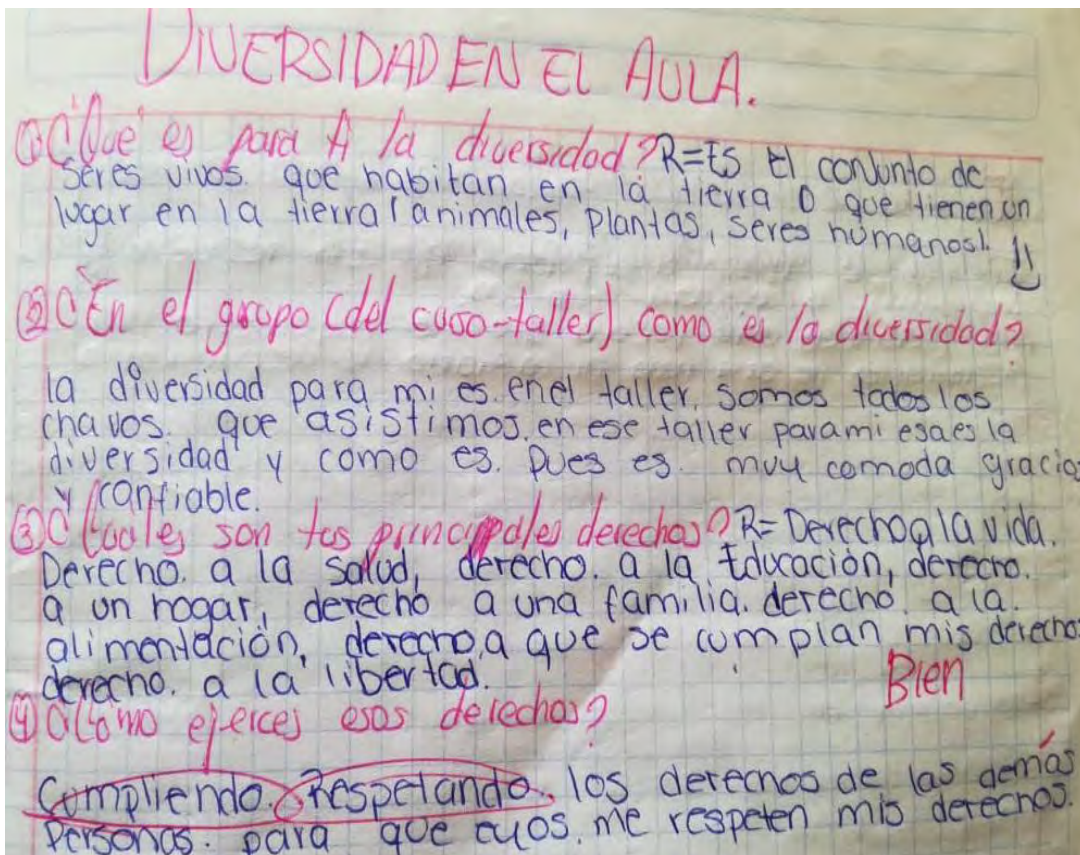 DIVERSIDAD EN EL AULA.
① ¿Qué es para la diversidad? R= Es El conjunto de
seres vivos. que habitan en la tierra o que tienen un
lugar en la tierra (animales, plantas, seres humanos).
② ¿En el grupo (del curso-taller) como es la diversidad?
la diversidad para mi es. en el taller. somos todos los
chavos. que asistimos. en ese taller para mi esa es la
diversidad y como es. pues es. muy comoda gracio
y confiable.
③ ¿Cuales son tus principales derechos? R= Derecho a la vida.
Derecho. a la salud, derecho. a la Educación, derecho.
a un hogar, derecho a una familia. derecho a la.
alimentación, derecho. a que se cumplan mis derecho
derecho. a la libertad.
Bien
④ ¿Como ejerces esos derechos?
Cumpliendo. Respetando. los derechos de las demás
Personas. para que me respeten mis derechos.